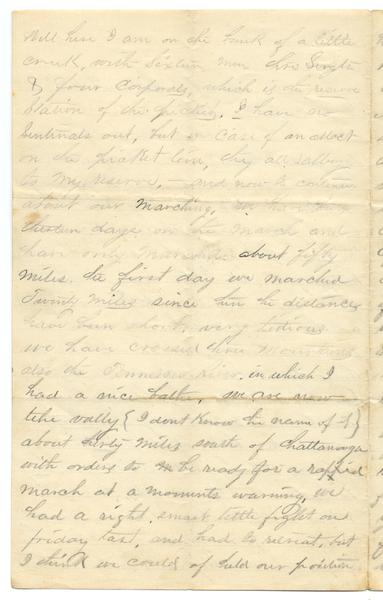 Well here I am on the bank of a little
creek, with sixteen men two Sergts
& four Corporals, which is the reserve
Station of the picket. I have no
Sentinals out, but in case of an attact
on the picket line, they all
to my reserve, and now to continue
about our marching, we have been
days on the march and
have only marched about fifty
miles. the first day we marched
Twenty Miles since then the distances
have been short, very tedious
we have crossed three Mountains
also the Tennessee River. in which I
had a nice bath, we are now
the vally { I dont Know the name of it }
about thirty miles south of Chattanooga
with orders to be ready for a rappid
march at a moments warning, we
had a right smart little fight on
friday last, and had to retreat, but
I think we could of held our position